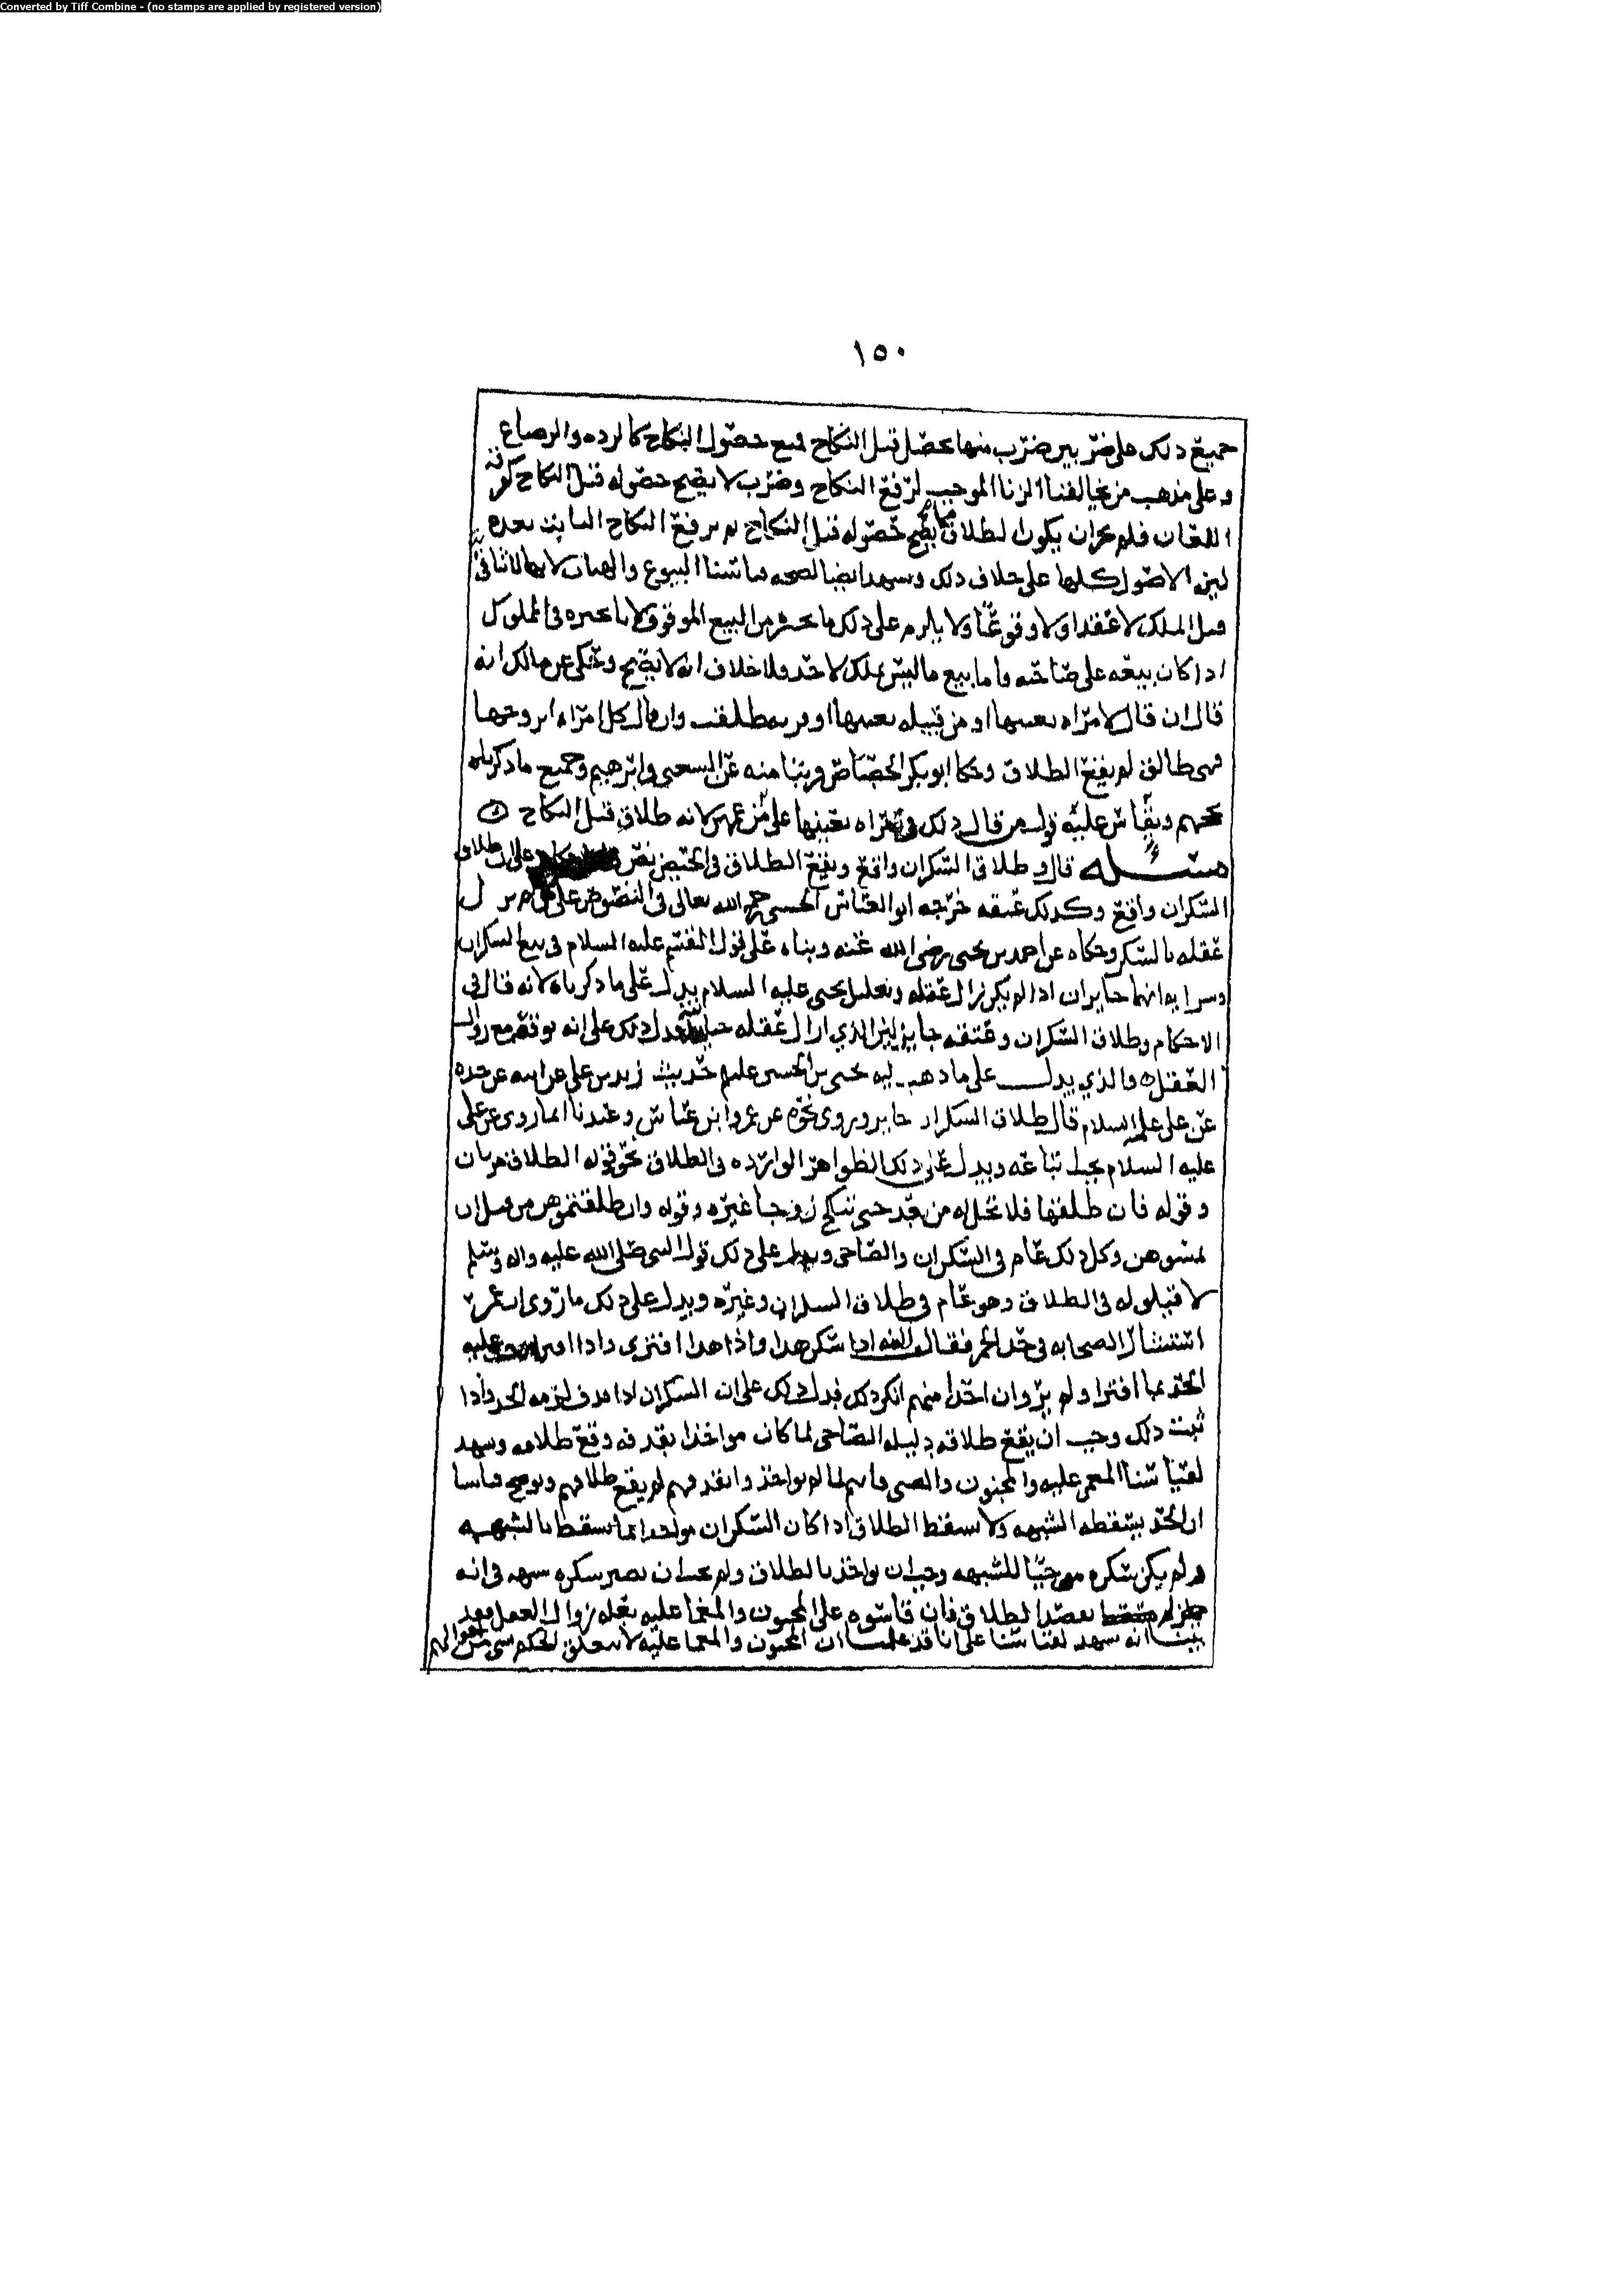 Converted by Tiff Combine - (no stamps are applied by registered version)
١٥٠
جميع ذلك على ضربين ضرب منها يحصل قبل النكاح فمنع حصول النكاح كالرده والرضاع
وعلى مذهب من يخالفنا الزنا الموجب لرفع النكاح وضرب لا يصح حصوله قبل النكاح
اللعان فلم يجز ان يكون الطلاق مما يصح حصوله قبل النكاح ثم يرفع النكاح الثابت بعده
لان الاصول كلها على خلاف ذلك ويشهد ايضا لصحه قياسنا البيوع والهبات
قبل الملك لا عقدا ولا وقوعا ولا يلزم على ذلك ما نحيزه من البيع الموقوف لانا نحيزه في المملوك
اذا كان بيعه على صاحبه واما بيع ما ليس بملك لاحد فلا خلاف انه لا يصح وحكي عن مالك انه
قال ان قال لامراه بعينها او من قبيله بعينها او قريه طلقت وان قال كل امراه اتزوجها
فهي طالق لم يقع الطلاق وحكا ابو بكر الجصاص قريبا منه عن الشعبي وابرهيم وجميع ما ذكرناه
يحجهم ويقاس عليه قول من قال ذلك في امراه بعينها على من عمهن لانه طلاق قبل النكاح
مسئله قال وطلاق السكران واقع ويقع الطلاق في الحيض نص على ان طلاق
السكران واقع وكذلك عتقه خرجه ابو العباس الحسني رحمه الله تعالى في النصوص على من لم يزل
عقله بالسكر وحكاه عن احمد بن يحيى رضي الله عنه وبناه على قول القسم عليه السلام في بيع السكران
وشرايه انهما جايزان اذا لم يكن زال عقله وتعليل يحيى عليه السلام يدل على ما ذكرناه لانه قال في
الاحكام وطلاق السكران وعتقه جايز لان الذي ازال عقله فدل ذلك على انه يوقعه مع زوال
العقل والذي يدل على ما ذهب اليه يحيى بن الحسين عليهم حديث زيد بن علي عن ابيه عن جده
عن علي عليه السلام قال طلاق السكران جايز وروي نحوه عن عمر وابن عباس وعندنا انما روي عن علي
عليه السلام يجب اتباعه ويدل على ذلك الظواهر الوارده في الطلاق نحو قوله الطلاق مرتان
وقوله فان طلقها فلا تحل له من بعد حتى تنكح زوجا غيره وقوله وان طلقتموهن من قبل ان
تمسوهن وكل ذلك عام في السكران والصاحي ويدل على ذلك قول النبي صلى الله عليه واله وسلم
لا قيلوله في الطلاق وهو عام في طلاق السكران وغيره ويدل على ذلك ما روي ان عمر
استشار الصحابه في حد الخمر فقال اذا سكر هذا واذا هذا افترى واذا افترى عليه
الحد بما افترا ولم يرو ان احدا منهم انكر ذلك فدل ذلك على ان السكران اذا قذف لزمه الحد واذا
ثبت ذلك وجب ان يقع طلاقه دليله الصاحي لما كان مواخذا بقذفه وقع طلاقه ويشهد
لقياسنا المغمى عليه والمجنون والصبي فانهم لما لم يواخذوا بقذفهم لم يقع طلاقهم ويوضح قياسنا
ان الحد يسقطه الشبهه ولا يسقط الطلاق اذا كان السكران مواخذا بما يسقط بالشبهه
ولم يكن سكره موجبا للشبهه وجب ان يواخذ بالطلاق ولم يجب ان يصير سكره شبهه في انه
بعض الطلاق فان قاسوه على المجنون والمغما عليه بعله زوال العقل فقد
بينا انه يشهد لقياسنا على انا قد علمنا ان المجنون والمغما عليه لا يتعلق الحكم بشي من اقوالهم